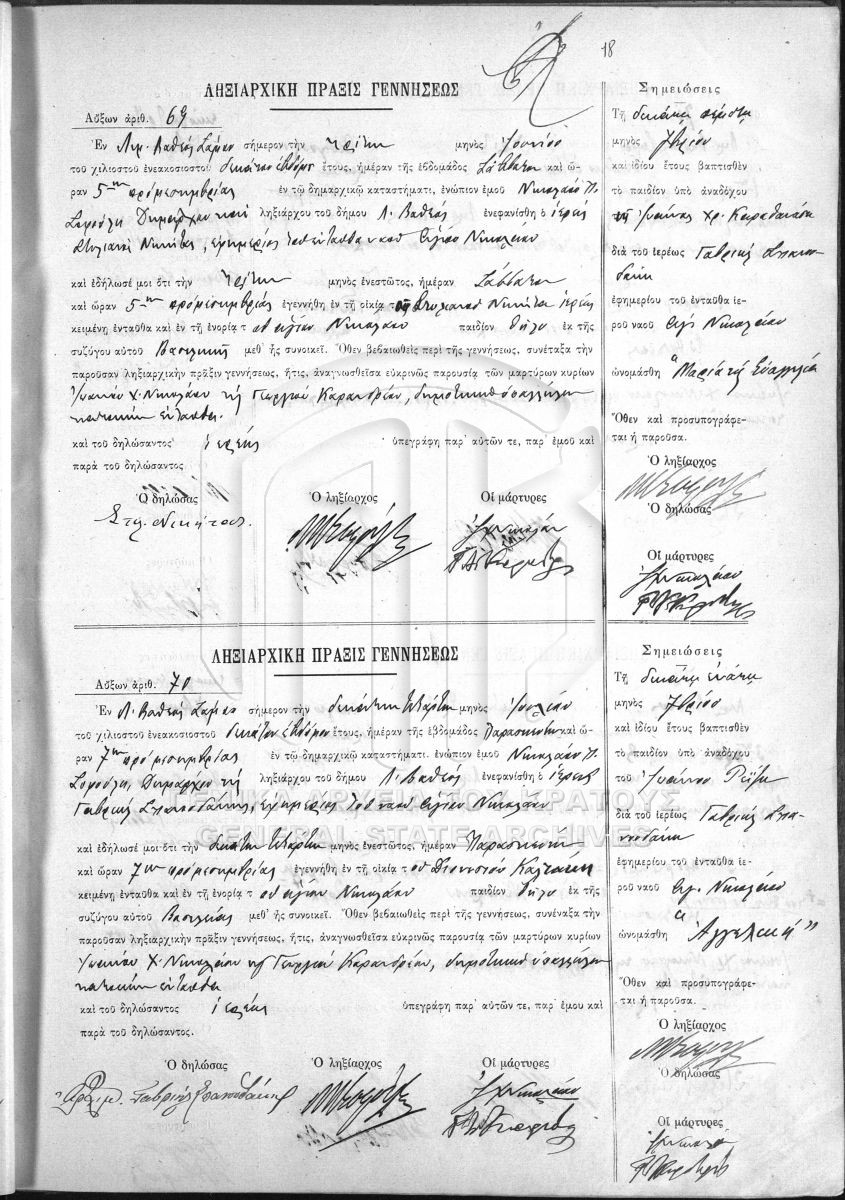 18
ΛΗΞΙΑΡΧΙΚΗ ΠΡΑΞΙΣ ΓΕΝΝΗΣΕΩΣ
Αὔξων ἀριθ. 69
Ἐν Λιμ. Βαθέος Σάμου σήμερον τὴν τρίτην μηνὸς Ἰουνίου
τοῦ χιλιοστοῦ ἐνεακοσιοστοῦ δεκάτου ἑβδόμου ἔτους, ἡμέραν τῆς ἑβδομάδος Σάββατον καὶ ὥ-
ραν 5ην πρὸ μεσημβρίας ἐν τῷ δημαρχικῷ καταστήματι, ἐνώπιον ἐμοῦ Νικολάου Π.
Δημάρχου καὶ ληξιάρχου τοῦ δήμου Λ. Βαθέος ἐνεφανίσθη ὁ ἱερεὺς
Στυλιανὸς Νικήτας, ἐφημέριος τοῦ ἐνταῦθα ναοῦ Ἁγίου Νικολάου
καὶ ἐδήλωσέ μοι ὅτι τὴν τρίτην μηνὸς ἐνεστῶτος, ἡμέραν Σάββατον
καὶ ὥραν 5ην πρὸ μεσημβρίας ἐγεννήθη ἐν τῇ οἰκίᾳ τοῦ Στυλιανοῦ Νικήτα ἱερέως
κειμένῃ ἐνταῦθα καὶ ἐν τῇ ἐνορίᾳ τοῦ ἁγίου Νικολάου παιδίον θῆλυ ἐκ τῆς
συζύγου αὐτοῦ Βασιλικῆς μεθ' ἧς συνοικεῖ. Ὅθεν βεβαιωθεὶς περὶ τῆς γεννήσεως, συνέταξα τὴν
παροῦσαν ληξιαρχικὴν πρᾶξιν γεννήσεως, ἥτις, ἀναγνωσθεῖσα εὐκρινῶς παρουσίᾳ τῶν μαρτύρων κυρίων
Ἰωάννου Χ. Νικολάου καὶ Γεωργίου Καρανδρέου, δημοτικῶν ὑπαλλήλων
κατοίκων ἐνταῦθα.
καὶ τοῦ δηλώσαντος ἱερέως ὑπεγράφη παρ' αὐτῶν τε, παρ' ἐμοῦ καὶ
παρὰ τοῦ δηλώσαντος
Ὁ δηλώσας Ὁ ληξίαρχος Οἱ μάρτυρες
Στυ. Νικήτας.
Σημειώσεις
Τῇ δεκάτῃ πέμπτῃ
μηνὸς 7βρίου
καὶ ἰδίου ἔτους βαπτισθὲν
τὸ παιδίον ὑπὸ ἀναδόχου
διὰ τοῦ ἱερέως Γαβριὴλ
ἐφημερίου τοῦ ἐνταῦθα ἱε-
ροῦ ναοῦ Ἁγ. Νικολάου
ὠνομάσθη
Ὅθεν καὶ προσυπογράφε-
ται ἡ παροῦσα.
Ὁ ληξίαρχος
Ὁ δηλώσας
Οἱ μάρτυρες
ΛΗΞΙΑΡΧΙΚΗ ΠΡΑΞΙΣ ΓΕΝΝΗΣΕΩΣ
Αὔξων ἀριθ. 70
Ἐν Λ. Βαθέος Σάμου σήμερον τὴν δεκάτην τετάρτην μηνὸς Ἰουλίου
τοῦ χιλιοστοῦ ἐνεακοσιοστοῦ δεκάτου ἑβδόμου ἔτους, ἡμέραν τῆς ἑβδομάδος Παρασκευὴν καὶ ὥ-
ραν 7ην πρὸ μεσημβρίας ἐν τῷ δημαρχικῷ καταστήματι. ἐνώπιον ἐμοῦ Νικολάου Π.
Δημάρχου καὶ ληξιάρχου τοῦ δήμου Λ. Βαθέος ἐνεφανίσθη ὁ ἱερεὺς
Γαβριὴλ ἐφημέριος τοῦ ναοῦ Ἁγίου Νικολάου
καὶ ἐδήλωσέ μοι ὅτι τὴν δεκάτην τετάρτην μηνὸς ἐνεστῶτος, ἡμέραν Παρασκευὴν
καὶ ὥραν 7ην πρὸ μεσημβρίας ἐγεννήθη ἐν τῇ οἰκίᾳ τοῦ Διονυσίου
κειμένῃ ἐνταῦθα καὶ ἐν τῇ ἐνορίᾳ τοῦ ἁγίου Νικολάου παιδίον θῆλυ ἐκ τῆς
συζύγου αὐτοῦ μεθ' ἧς συνοικεῖ. Ὅθεν βεβαιωθεὶς περὶ τῆς γεννήσεως, συνέταξα τὴν
παροῦσαν ληξιαρχικὴν πρᾶξιν γεννήσεως, ἥτις, ἀναγνωσθεῖσα εὐκρινῶς παρουσίᾳ τῶν μαρτύρων κυρίων
Ἰωάννου Χ. Νικολάου καὶ Γεωργίου Καρανδρέου, δημοτικῶν ὑπαλλήλων
κατοίκων ἐνταῦθα
καὶ τοῦ δηλώσαντος ἱερέως ὑπεγράφη παρ' αὐτῶν τε, παρ' ἐμοῦ καὶ
παρὰ τοῦ δηλώσαντος.
Ὁ δηλώσας Ὁ ληξίαρχος Οἱ μάρτυρες
Σημειώσεις
Τῇ δεκάτῃ ἐνάτῃ
μηνὸς 7βρίου
καὶ ἰδίου ἔτους βαπτισθὲν
τὸ παιδίον ὑπὸ ἀναδόχου
τοῦ Ἰωάννου
διὰ τοῦ ἱερέως Γαβριὴλ
ἐφημερίου τοῦ ἐνταῦθα ἱε-
ροῦ ναοῦ Ἁγ. Νικολάου
ὠνομάσθη "Ἀγγελικὴ"
Ὅθεν καὶ προσυπογράφε-
ται ἡ παροῦσα.
Ὁ ληξίαρχος
Ὁ δηλώσας
Οἱ μάρτυρες
ΓΕΝΙΚΑ ΑΡΧΕΙΑ ΤΟΥ ΚΡΑΤΟΥΣ
GENERAL STATE ARCHIVES